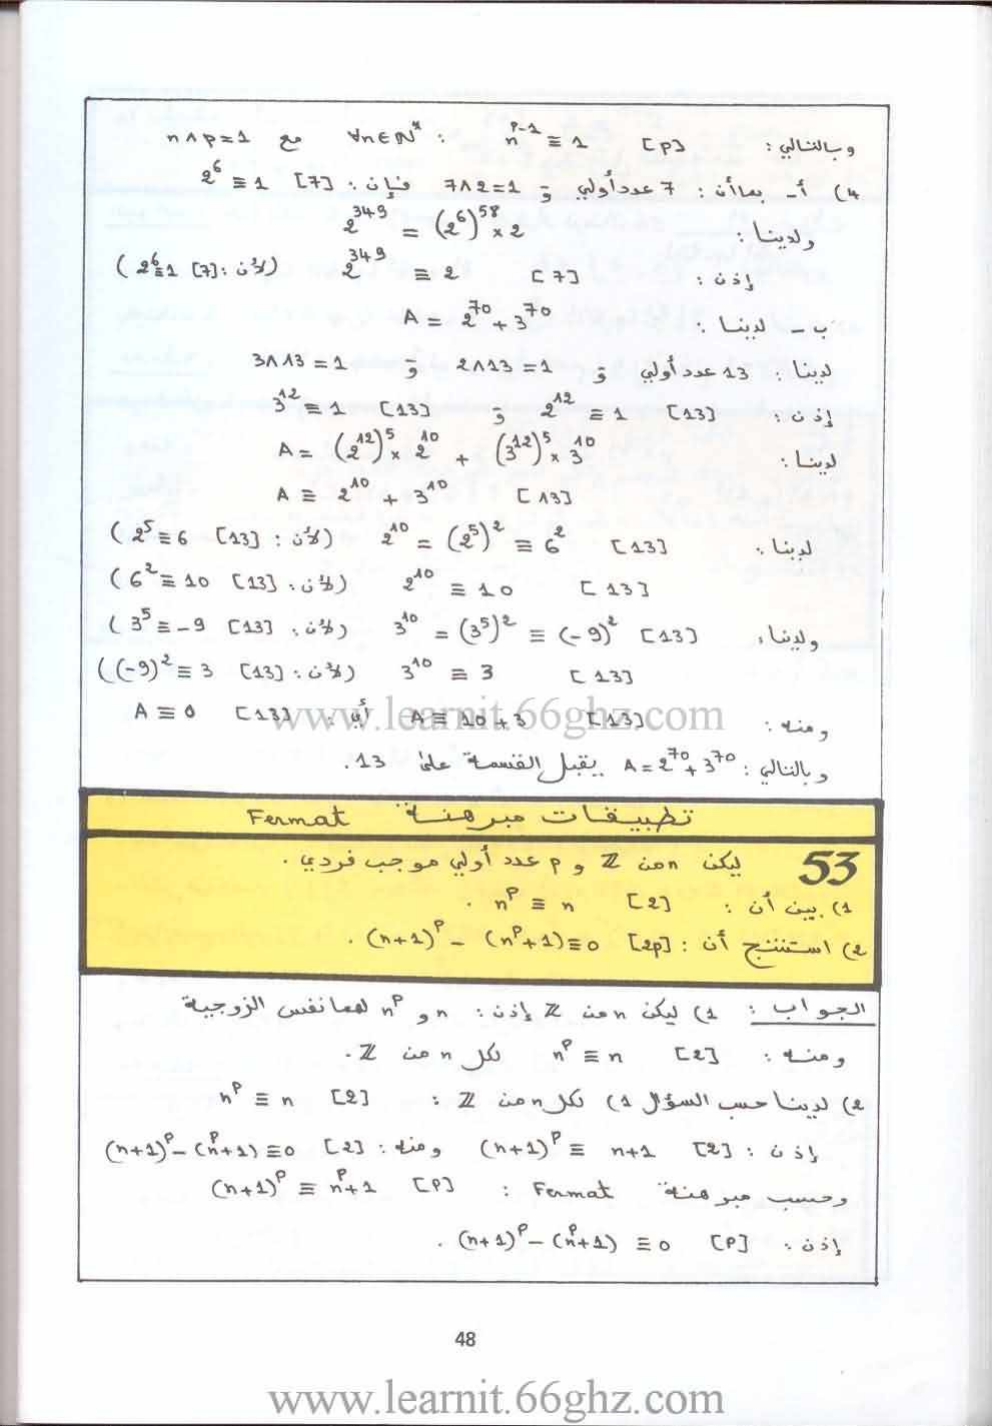 وبالتالي : n^{p-1} ≡ 1 [p] : ∀n∈ℕ* مع n∧p=1
4) أ- بما أن : 7 عدد أولي و 7∧2=1 فإن : 2^6 ≡ 1 [7]
ولدينا : 2^{349} = (2^6)^{58} × 2
إذن : 2^{349} ≡ 2 [7] (لأن : 2^6≡1 [7])
ب - لدينا : A = 2^{70} + 3^{70}
لدينا : 13 عدد أولي و 2∧13 = 1 و 3∧13 = 1
إذن : 2^{12} ≡ 1 [13] و 3^{12} ≡ 1 [13]
لدينا : A = (2^{12})^5 × 2^{10} + (3^{12})^5 × 3^{10}
A ≡ 2^{10} + 3^{10} [13]
لدينا : 2^{10} = (2^5)^2 ≡ 6^2 [13] (لأن : 2^5 ≡ 6 [13])
2^{10} ≡ 10 [13] (لأن : 6^2 ≡ 10 [13])
ولدينا : 3^{10} = (3^5)^2 ≡ (-9)^2 [13] (لأن : 3^5 ≡ -9 [13])
3^{10} ≡ 3 [13] (لأن : (-9)^2 ≡ 3 [13])
ومنه : A ≡ 10+3 [13] أي : A ≡ 0 [13]
www.learnit.66ghz.com
وبالتالي : A = 2^{70} + 3^{70} يقبل القسمة على 13.
تطبيقات مبرهنة Fermat
53 ليكن n من ℤ و p عدد أولي موجب فردي .
1) بين أن : n^p ≡ n [2] .
2) استنتج أن : (n+1)^p - (n^p+1) ≡ 0 [2p] .
الجواب : 1) ليكن n من ℤ إذن : n و n^p لهما نفس الزوجية
ومنه : n^p ≡ n [2] لكل n من ℤ .
2) لدينا حسب السؤال 1) لكل n من ℤ : n^p ≡ n [2]
إذن : (n+1)^p ≡ n+1 [2] ومنه : (n+1)^p - (n^p+1) ≡ 0 [2]
وحسب مبرهنة Fermat : (n+1)^p ≡ n^p+1 [p]
إذن : (n+1)^p - (n^p+1) ≡ 0 [p] .
48
www.learnit.66ghz.com